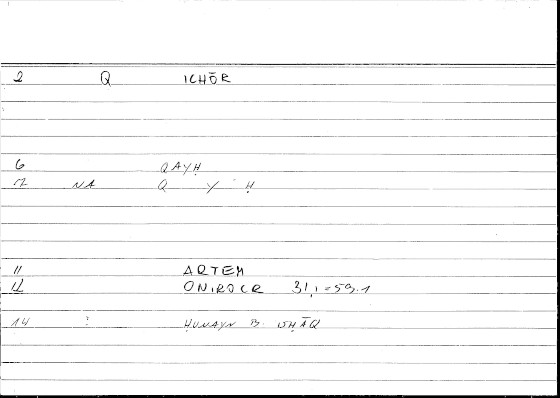 2 Q ICHŌR
6 QAYḤ
7 NA Q Y Ḥ
11 ARTEM
12 ONIROCR 31,1=59.1
14 ? ḤUNAYN B. ISḤĀQ